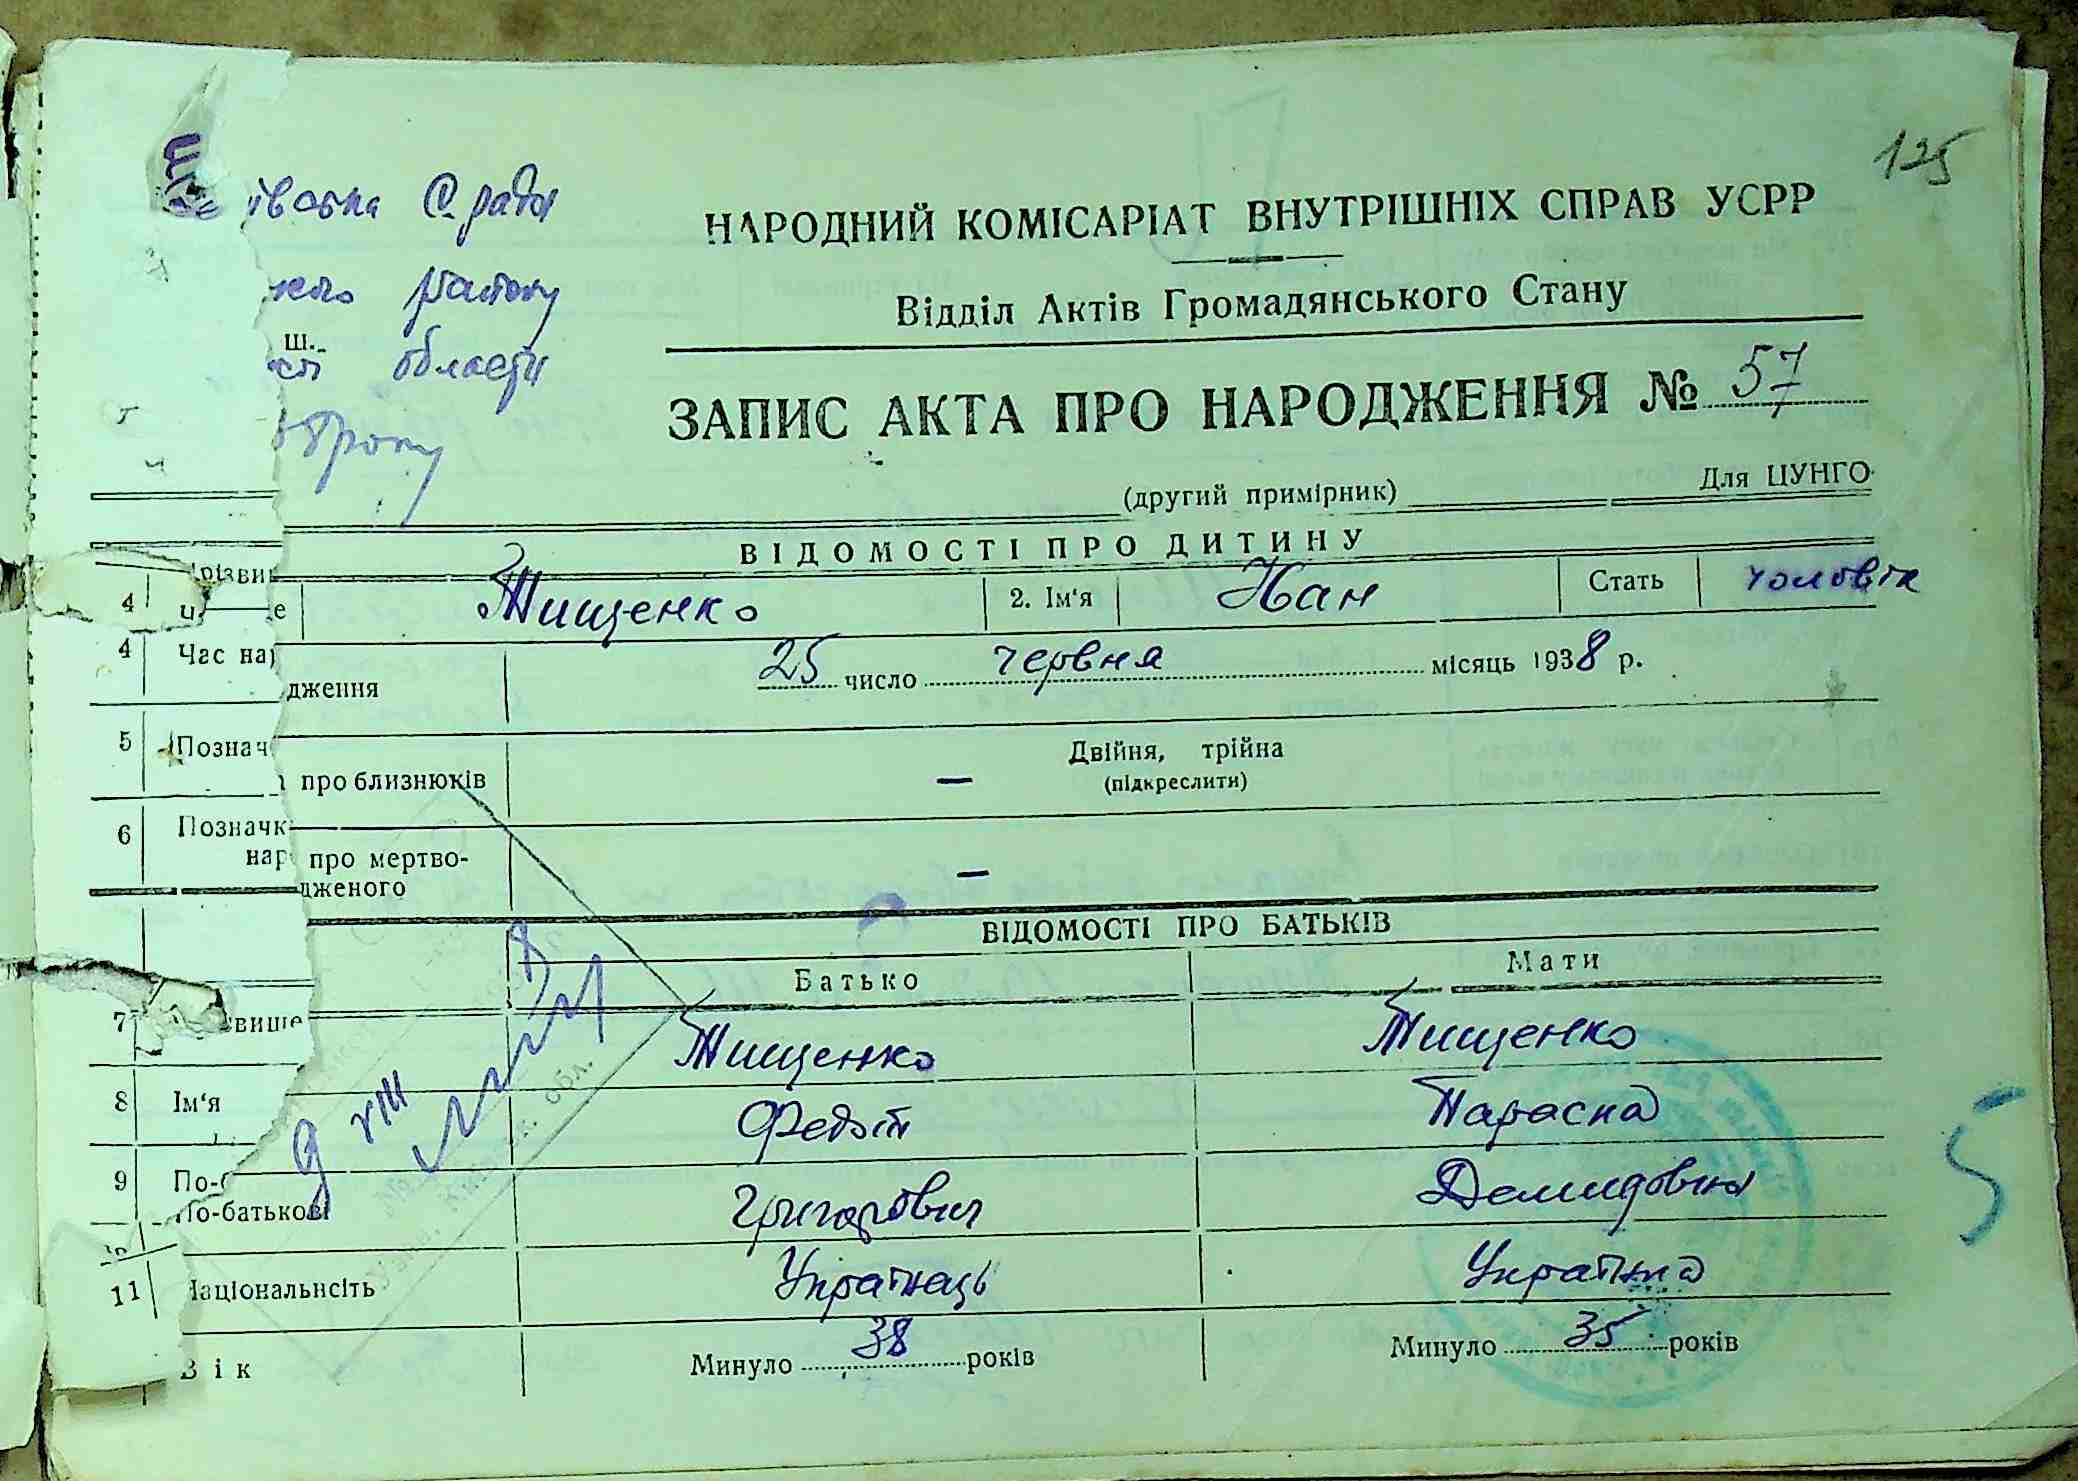 125
івська С. рада
НАРОДНИЙ КОМІСАРІАТ ВНУТРІШНІХ СПРАВ УСРР
ського району
Відділ Актів Громадянського Стану
ш.
області
ЗАПИС АКТА ПРО НАРОДЖЕННЯ № 57
року
(другий примірник) Для ЦУНГО
ВІДОМОСТІ ПРО ДИТИНУ
Тищенко 2. Ім'я Иан Стать чоловік
4 Час нар
дження 25 число червня місяць 1938 р.
5 Познач про близнюків — Двійня, трійна
(підкреслити)
6 Позначк
нар про мертво-
дженого —
ВІДОМОСТІ ПРО БАТЬКІВ
Батько Мати
7 звище Тищенко Тищенко
8 Ім'я Федот Параска
9 По-
По-батькові Григорович Демидовна
11 Національнсість Українець Українка
Вік Минуло 38 років Минуло 35 років
9 VIII
обл.
5